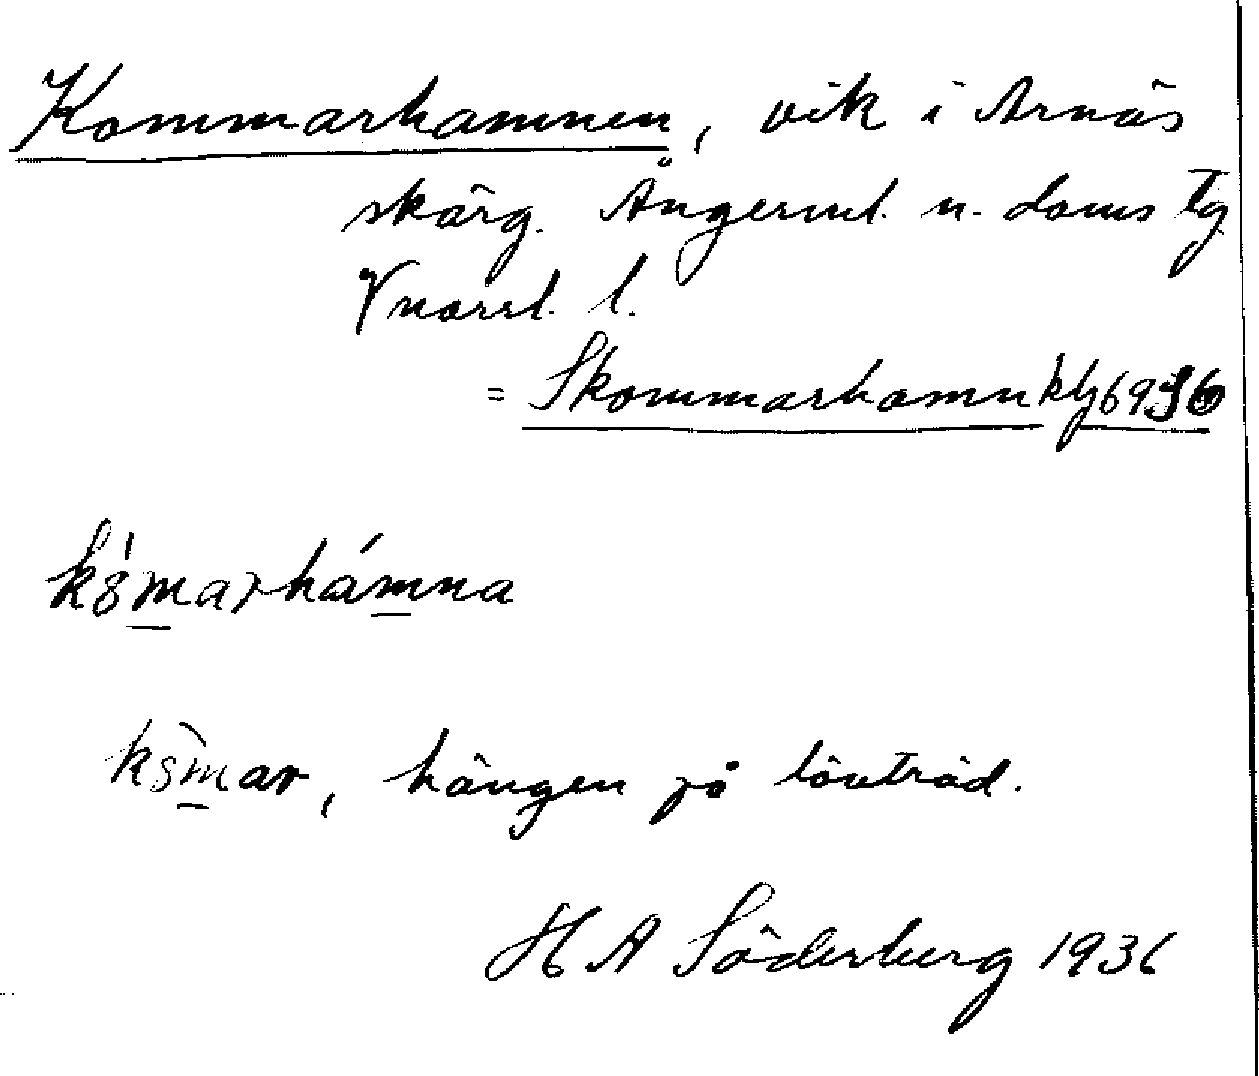 Kommarhamnen, vik i Arnäs
skärg. Ångerml. n. doms tg
V norrl. l.
= Skommarhamn kbl 69 S6
kȯ́marhámna
kòmar, hängen på lövträd.
H A Söderberg 1936